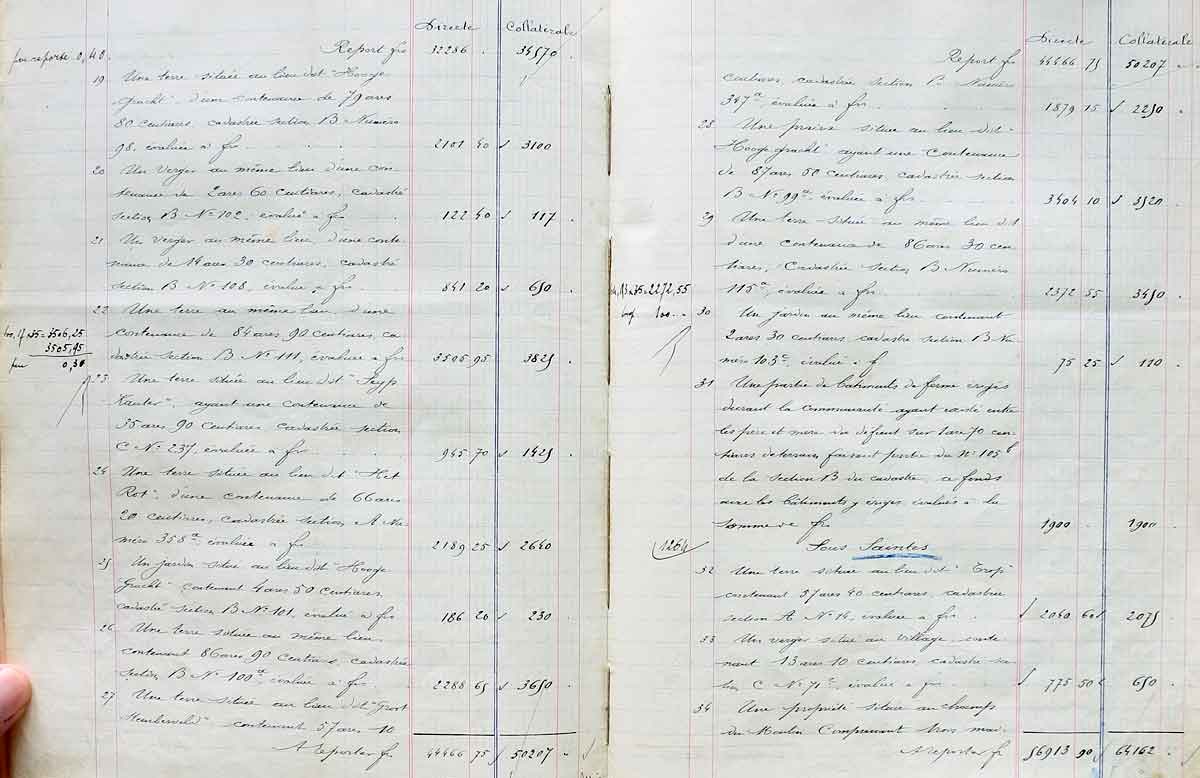 Directe Collatérale
Report fr 32286 . 34570 .
19 Une terre située au lieu dit "Hooge
gracht" d'une contenance de 79 ares
80 centiares, cadastrée section B Numéro
98, évaluée à fr. 2101 40 3100
20 Un verger au même lieu d'une con
tenance de 2 ares 60 centiares, cadastré
section B No 102, évalué à fr 122 40 117 .
21 Un verger au même lieu d'une conte
nance de 14 ares 30 centiares, cadastré
section B No 108, évalué à fr. 841 20 650 .
22 Une terre au même lieu d'une
contenance de 84 ares 90 centiares, ca
dastrée section B No 111, évaluée à fr 3505 95 3825 .
3506,25
3505,95
0,30
23 Une terre située au lieu dit
, ayant une contenance de
35 ares 90 centiares cadastrée section
C No 237, évaluée à fr. 945 70 1425 .
24 Une terre située au lieu dit "Het
Rot" d'une contenance de 66 ares
20 centiares, cadastrée section A Nu
méro 358a évaluée à fr. 2189 25 2640 .
25 Un jardin situé au lieu dit "Hooge
Gracht" contenant 4 ares 50 centiares,
cadastré section B No 101, évalué à fr. 186 20 230 .
26 Une terre située au même lieu
contenant 86 ares 90 centiares, cadastrée
section B No 100a, évaluée à fr. 2288 65 3650 .
27 Une terre située au lieu dit "Groot
contenant 57 ares 10
A reporter fr 44466 75 50207 .
Directe Collatérale
Report fr 44466 75 50207 .
centiares cadastrée section B Numéro
347a, évaluée à frs 1879 15 2250 .
28 Une prairie située au lieu dit
"Hooge gracht" ayant une contenance
de 87 ares 50 centiares cadastrée section
B No 99a, évaluée à frs. 3404 10 3520 .
29 Une terre située au même lieu dit
d'une contenance de 86 ares 30 cen
tiares, cadastrée section B Numéro
115a, évaluée à frs. 2372 55 3450 .
2272,55
30 Un jardin au même lieu contenant
2 ares 30 centiares cadastré section B Nu
méro 103c, évalué à f 75 25 110 .
31 Une partie de bâtiments de ferme érigés
durant la communauté ayant existé entre
les père et mère du défunt sur 1 are 70 cen
tiares de terrain faisant partie du no 105b
de la section B du cadastre, ce fonds
avec les bâtiments y érigés évalués à la
somme de frs 1900 . 1900 .
1264
Sous Saintes
32 Une terre située au lieu dit
contenant 57 ares 40 centiares, cadastrée
section A No 14, évaluée à frs. 2040 60 2075 .
33 Un verger situé au village conte
nant 13 ares 10 centiares, cadastré sec
tion C No 71a, évalué à frs. 775 50 650 .
34 Une propriété située au champs
du Moulin comprenant trois mai
A reporter fr 56913 90 64162 .